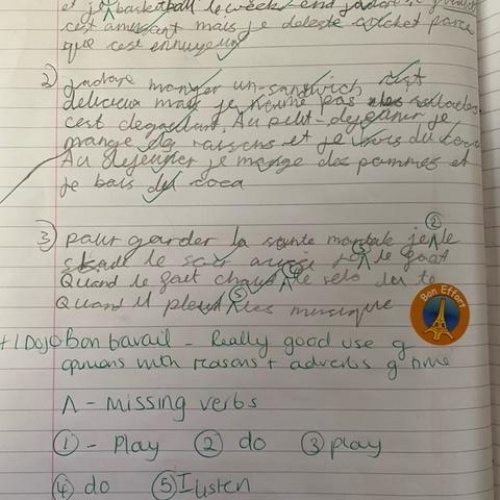 et je basketball le week-end
c'est amusant mais je deteste cricket parce
que c'est ennuyeux
2) J'adore manger un sandwich c'est
delicieux mais je n'aime pas les
c'est degoutant. Au petit-dejeuner je
mange des raisens et je bois du coca
Au dejeuner je mange des pommes et
je bois du coca
3) Pour garder la sante mentale je Λ ② le
le soir aussi Λ ③ le foot
Quand le fait chaud Λ ④ le velo
Quand il pleut Λ ⑤ les musique
Bon Effort
+1 Dojo Bon travail - Really good use of
opinions with reasons + adverbs of time
Λ - missing verbs
① - Play ② do ③ play
④ do ⑤ I listen